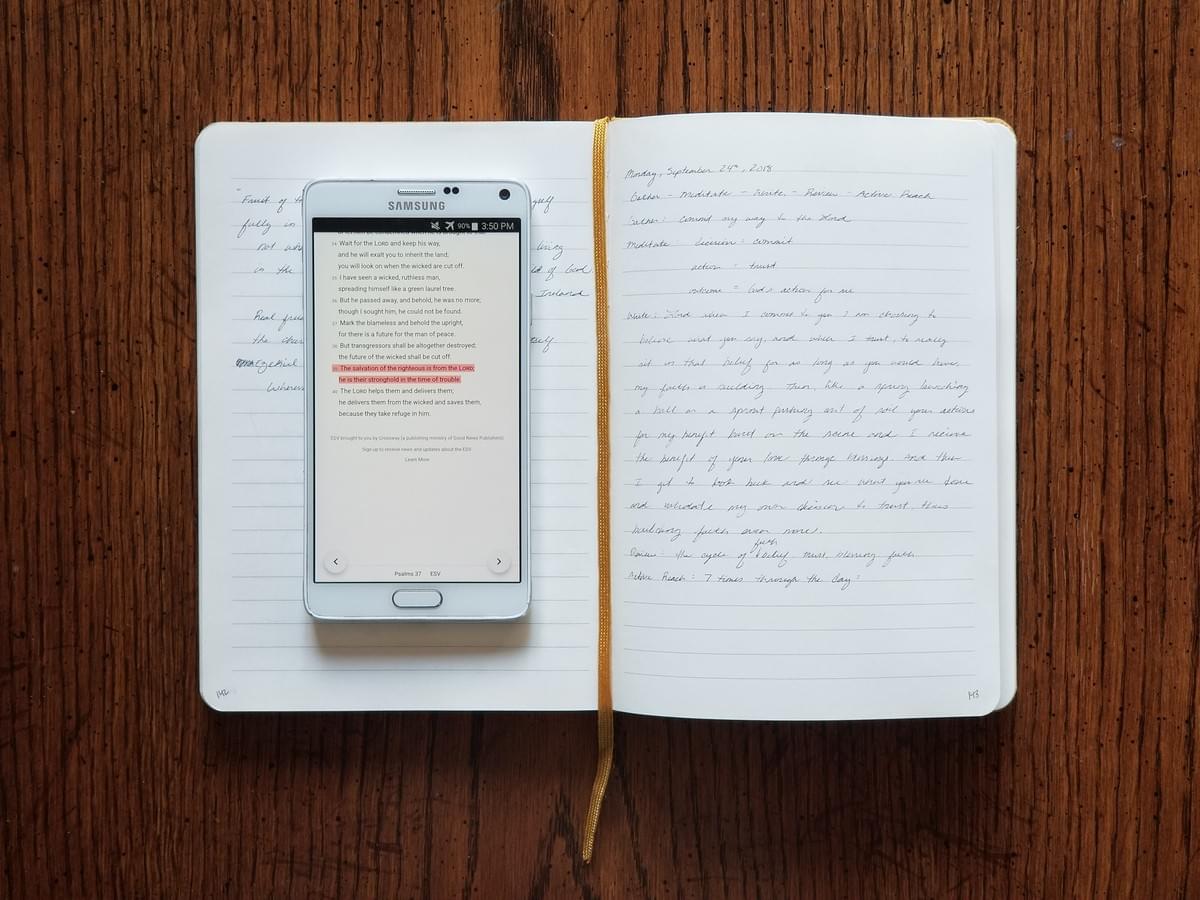 "Trust of
yself
fully in
not
living
in the
of God
Ireland
Real
the
self
Ezekiel
Where
142
SAMSUNG
90% 3:50 PM
34 Wait for the LORD and keep his way,
and he will exalt you to inherit the land;
you will look on when the wicked are cut off.
35 I have seen a wicked, ruthless man,
spreading himself like a green laurel tree.
36 But he passed away, and behold, he was no more;
though I sought him, he could not be found.
37 Mark the blameless and behold the upright,
for there is a future for the man of peace.
38 But transgressors shall be altogether destroyed;
the future of the wicked shall be cut off.
39 The salvation of the righteous is from the LORD;
he is their stronghold in the time of trouble.
40 The LORD helps them and delivers them;
he delivers them from the wicked and saves them,
because they take refuge in him.
ESV brought to you by Crossway (a publishing ministry of Good News Publishers).
Sign up to receive news and updates about the ESV.
Learn More
Psalms 37 ESV
Monday, September 24th, 2018
Gather - Meditate - Write - Review - Active Reach
Gather: Commit my way to the Lord
Meditate: decision: commit
action = trust
outcome = God's action for me
Write: Lord when I commit to you I am choosing to
believe what you say, and when I trust, to really
sit in that belief for as long as you would have,
my faith is building. Then, like a spring launching
a ball or a sprout pushing out of soil your actions
for my benefit burst on the scene and I receive
the benefit of your love through blessing. And then
I get to look back and see what you've done
and validate my own decision to trust thus
building faith even more.
Review: The cycle of faith belief, trust, blessing faith
Active Reach: 7 times through the day!
143